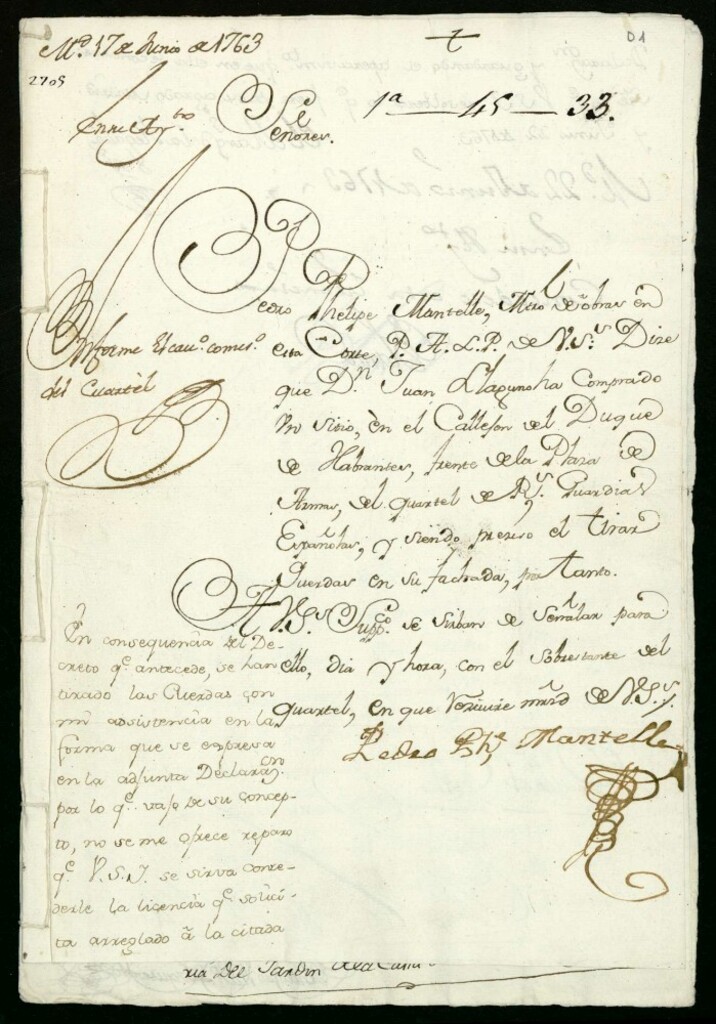 M.d 17 de Junio de 1763
D1
2705
En el Ay.to
Señores.
1a — 45 — 33.
Pedro Phelipe Mantelle, Mro de obras en
Informe el cav.o comis.o
esta Corte, P. A. L. P. de V.S.s Dize
del Cuartèl
que D.n Juan Llaguno ha Comprado
Un sitio, en el Callejon del Duque
de Habrantes, frente de la Plaza de
Armas, del quartel de R.s Guardias
Españolas, y siendo preciso el tirar
Querdas en su fachada, por tanto.
A V.S.s Supp.co se sirban de señalar para
ello, dia y hora, con el sobrestante del
quartel, en que recivire mrd de V.S.s.
Pedro Phe Mantelle
En consequencia del De-
creto q.e antecede, se han
tirado las Cuerdas con
mi adsistencia en la
forma que se expresa
en la adjunta Declaraz.on
por lo q.e vajo de su concep-
to, no se me ofrece reparo
q.e V.S.I. se sirva conce-
derle la licencia q.e solici-
ta arreglado à la citada
ria del Jardin